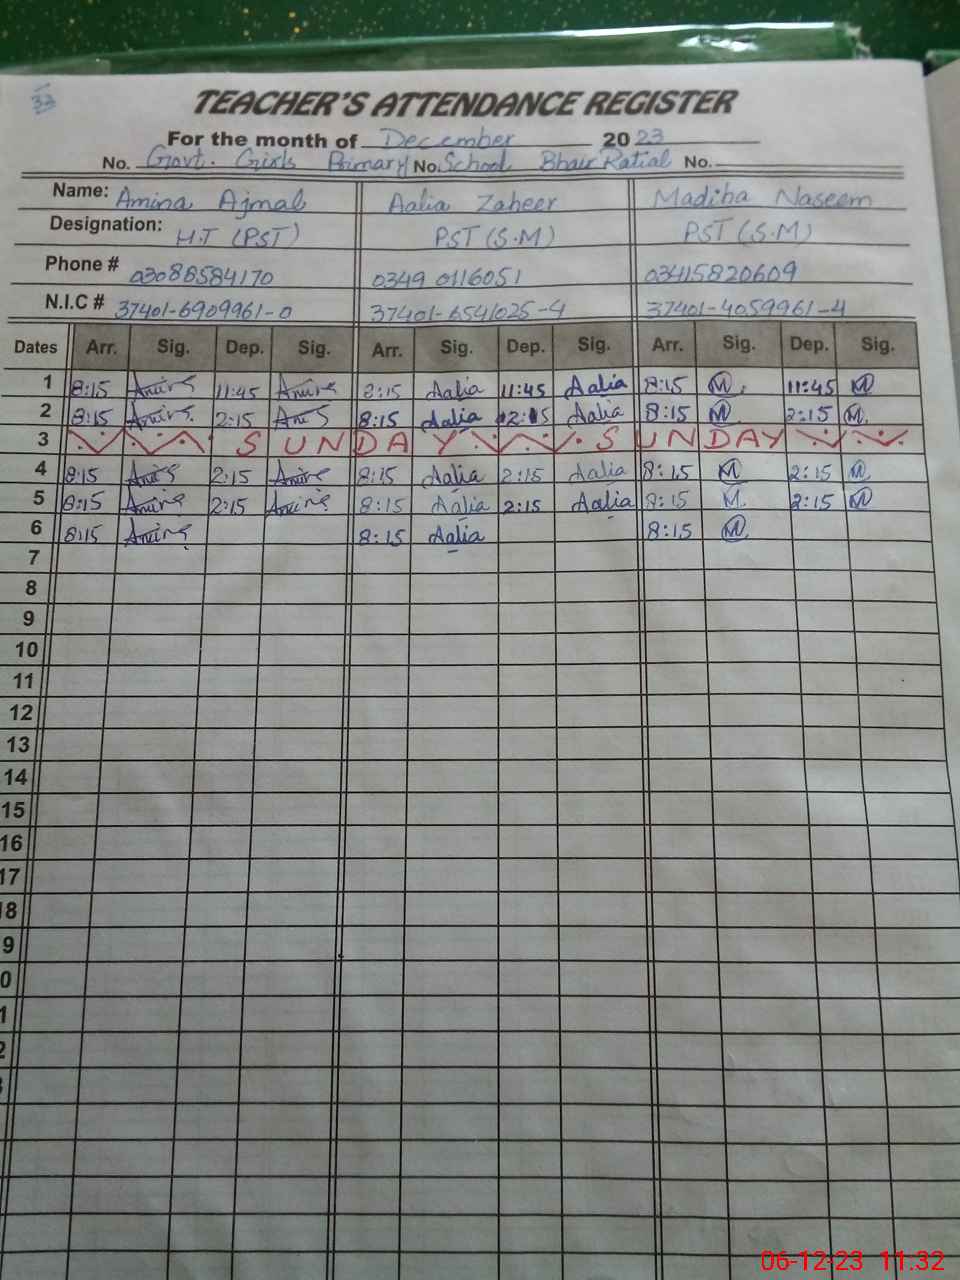 33
TEACHER'S ATTENDANCE REGISTER
For the month of December 2023
No. Govt. Girls Primary No. School Bhair Ratial No.
Name: Amina Ajmal Aalia Zaheer Madiha Naseem
Designation: H.T (PST) PST (S.M) PST (S.M)
Phone # 03088584170 0349 0116051 03415820609
N.I.C # 37401-6909961-0 37401-6541025-4 37401-4059961-4
Dates Arr. Sig. Dep. Sig. Arr. Sig. Dep. Sig. Arr. Sig. Dep. Sig.
1 8:15 11:45 8:15 Aalia 11:45 Aalia 8:15 M. 11:45 M
2 8:15 2:15 8:15 Aalia 2:15 Aalia 8:15 M 2:15 M.
3 SUNDAY SUNDAY
4 8:15 2:15 8:15 Aalia 2:15 Aalia 8:15 M 2:15 M
5 8:15 2:15 8:15 Aalia 2:15 Aalia 8:15 M. 2:15 M
6 8:15 8:15 Aalia 8:15 M
7
8
9
10
11
12
13
14
15
16
17
18
9
0
1
2
06-12-23 11:32